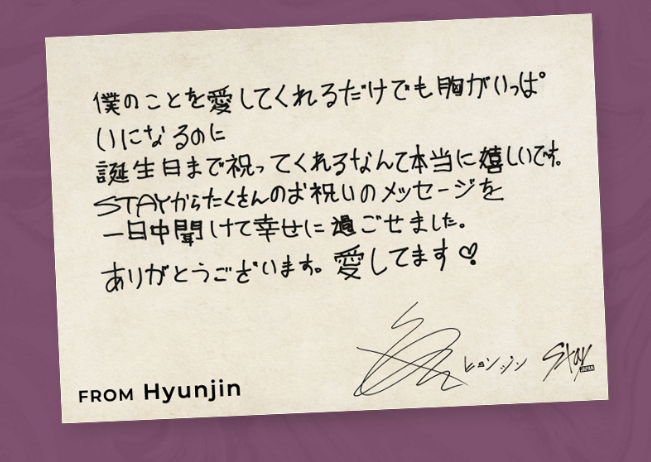 僕のことを愛してくれるだけでも胸がいっぱ
いになるのに
誕生日まで祝ってくれるなんて本当に嬉しいです。
STAYからたくさんのお祝いのメッセージを
一日中聞けて幸せに過ごせました。
ありがとうございます。愛してます♡
ヒョンジン STAY JAPAN
FROM Hyunjin